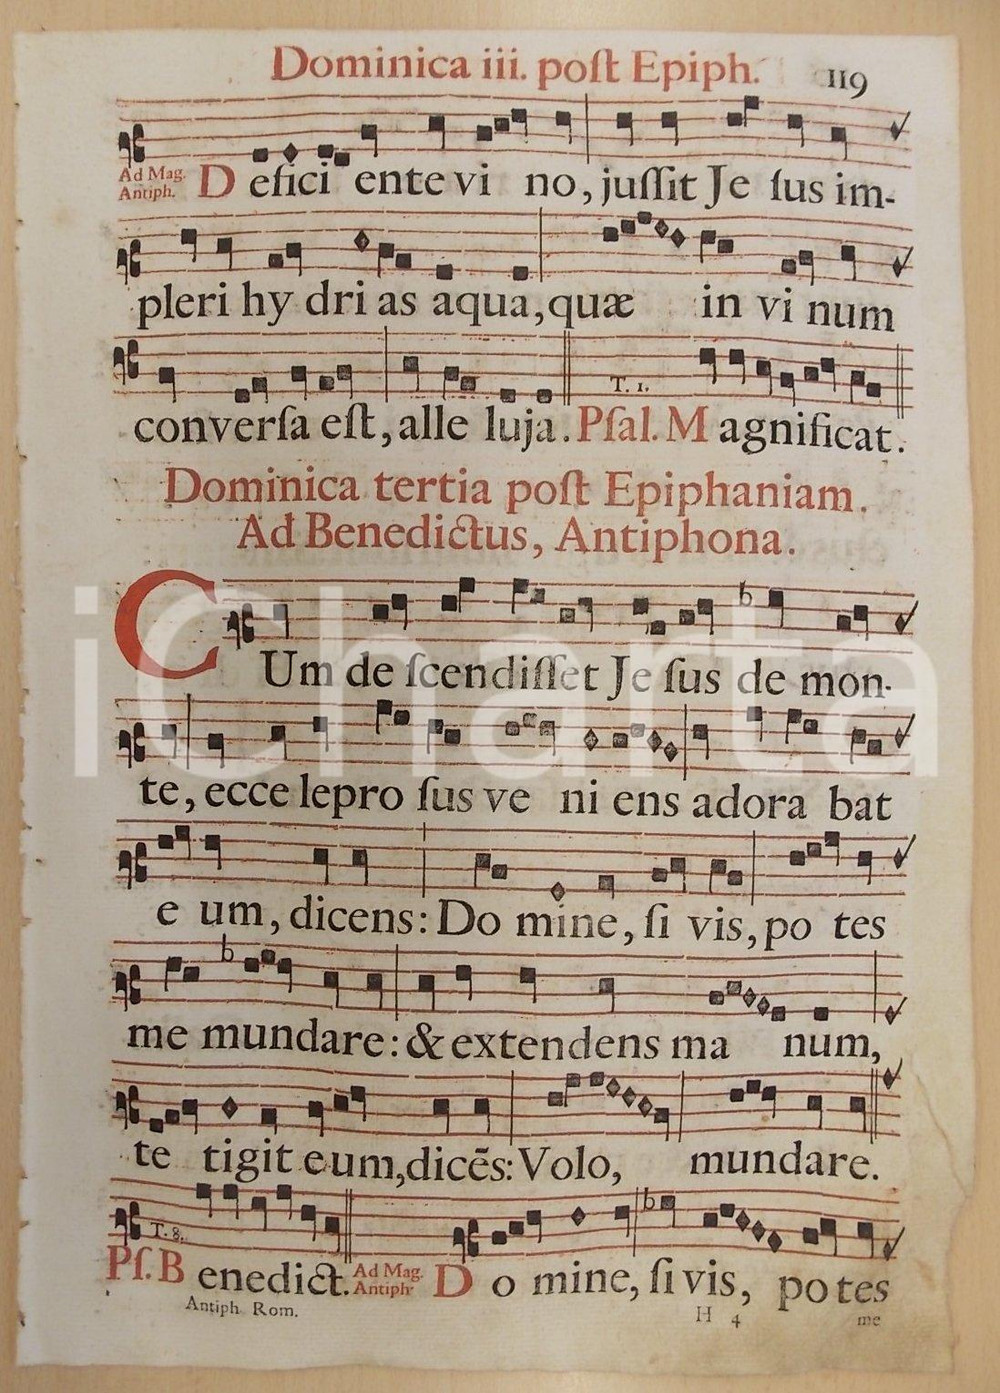 Dominica iii. poſt Epiph. 119
Ad Mag. Antiph. D efici ente vi no, juſſit Je ſus im-
pleri hy dri as aqua, quæ in vi num
T. 1.
converſa eſt, alle luja. Pſal. M agnificat.
Dominica tertia poſt Epiphaniam.
Ad Benedictus, Antiphona.
b
CUm de ſcendiſſet Je ſus de mon-
te, ecce lepro ſus ve ni ens adora bat
e um, dicens: Do mine, ſi vis, po tes
b
me mundare: & extendens ma num,
te tigit eum, dicēs: Volo, mundare.
T. 8. b
Pſ. B enedict. Ad Mag. Antiph. D o mine, ſi vis, po tes
Antiph. Rom. H 4 me
iCharta